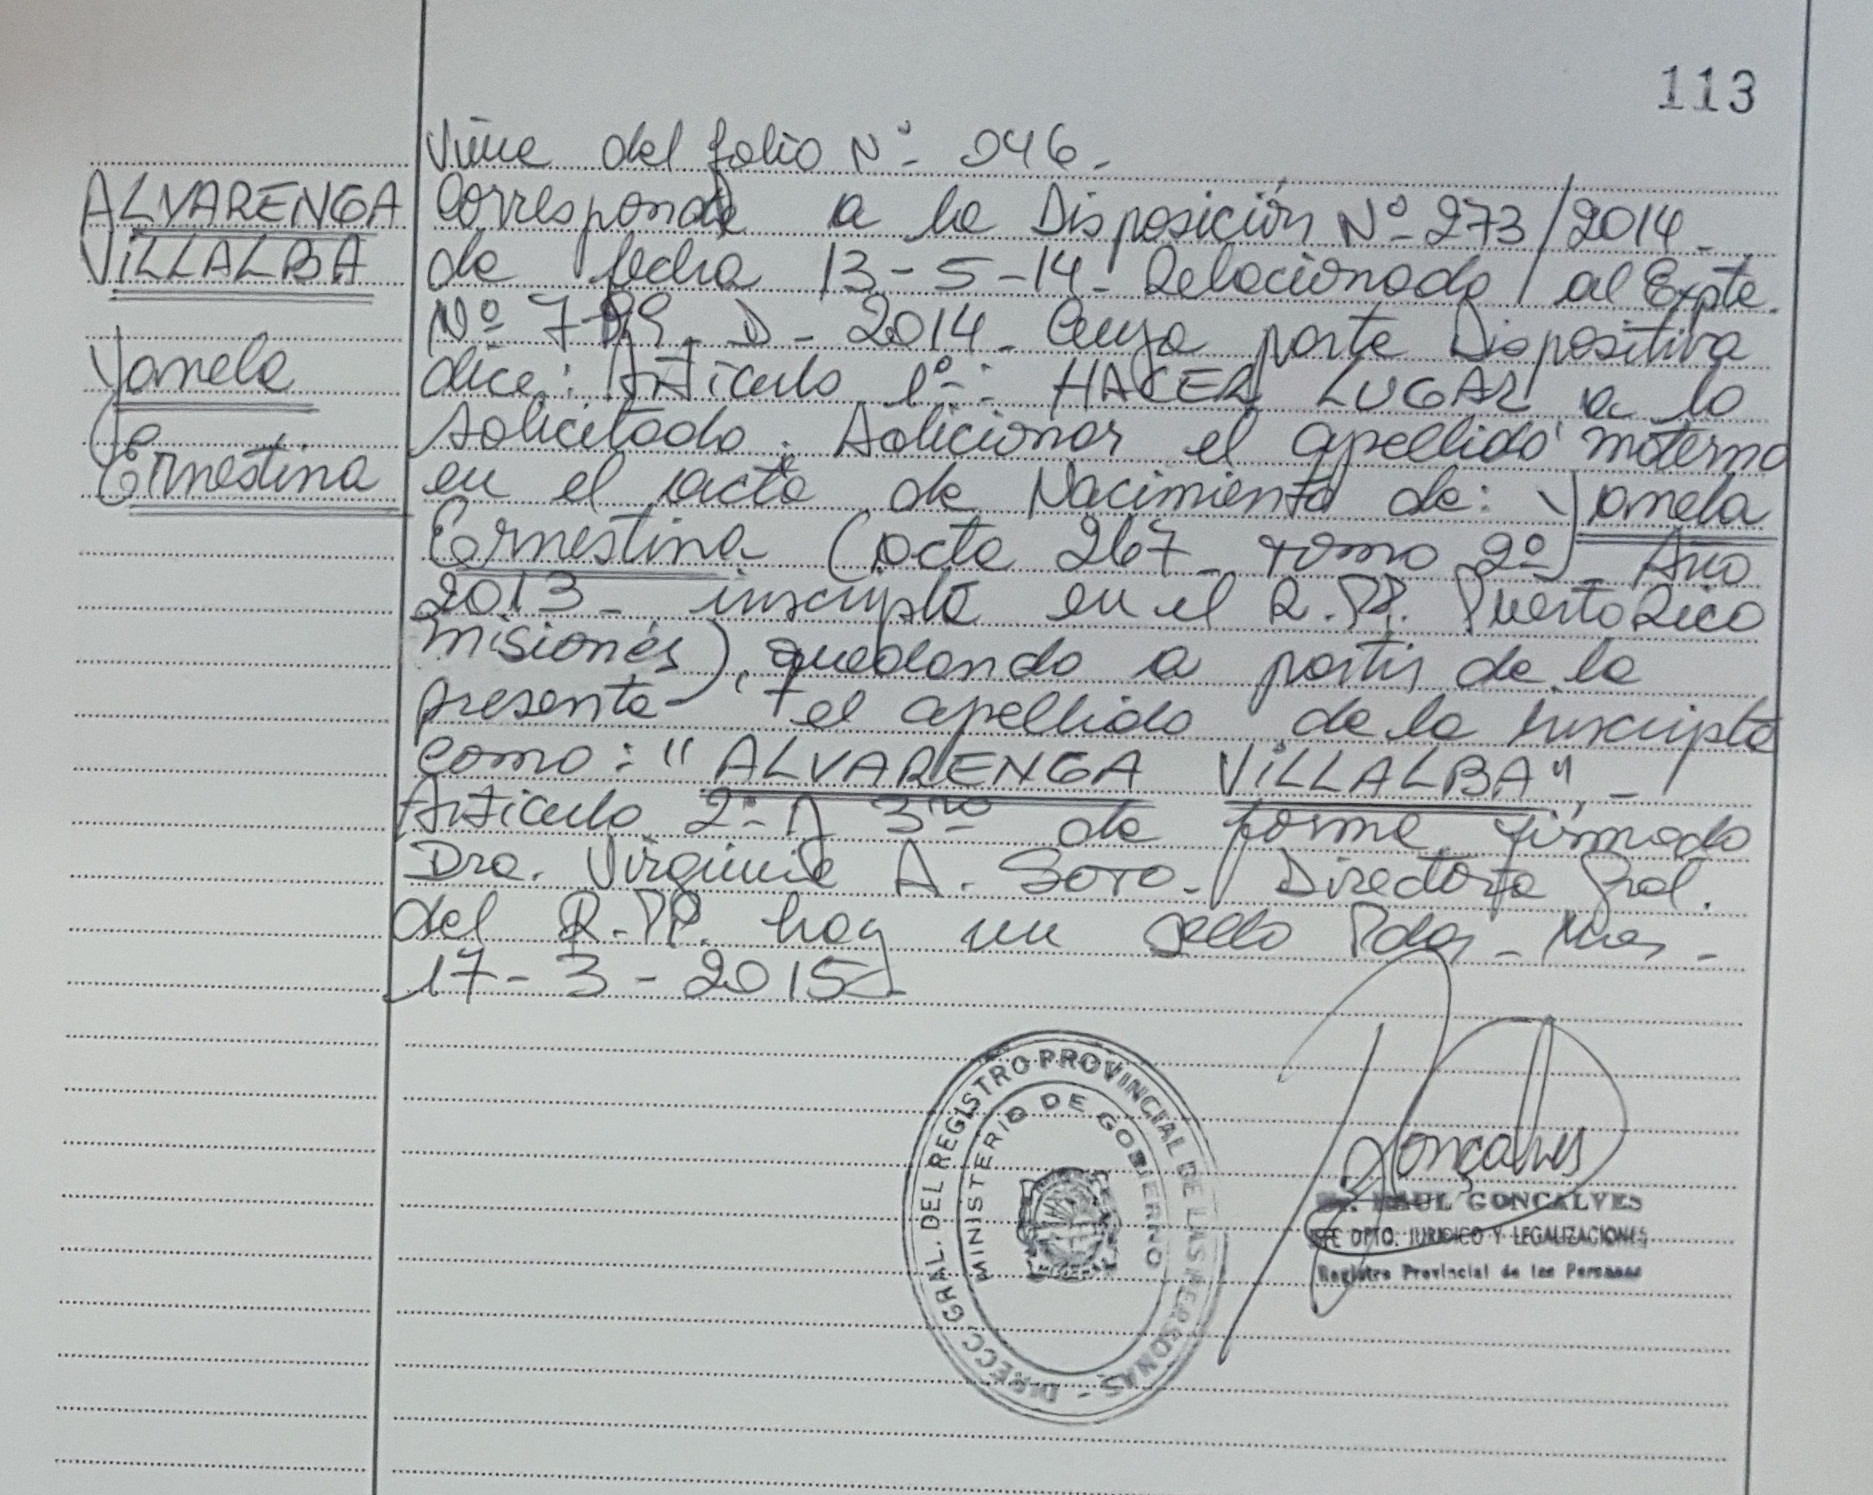 113
Viene del folio Nº 046.
ALVARENGA
VILLALBA
Yanela
Ernestina
Corresponde a la Disposición Nº 273/2014
de fecha 13-5-14. Relacionado al Expte.
Nº D - 2014. Cuya parte Dispositiva
dice: Artículo 1º: HACER LUGAR a lo
solicitado. Adicionar el apellido materno
en el acta de Nacimiento de: Yanela
Ernestina (acta 267 - Tomo 2º - Año
2013 - inscripta en el R.PP. Puerto Rico
Misiones), quedando a partir de la
presente el apellido de la inscripta
como: "ALVARENGA VILLALBA", -
Artículo 2º A 3ro de forma firmado
Dra. Virginia A. Soto. Directora Gral.
del R.PP. hay un sello Pdas - Mnes -
17-3-2015
DIRECC. GRAL. DEL REGISTRO PROVINCIAL DE LAS PERSONAS -
MINISTERIO DE GOBIERNO
Gonçalves
RAUL GONCALVES
JEFE DPTO. JURIDICO Y LEGALIZACIONES
Registro Provincial de las Personas